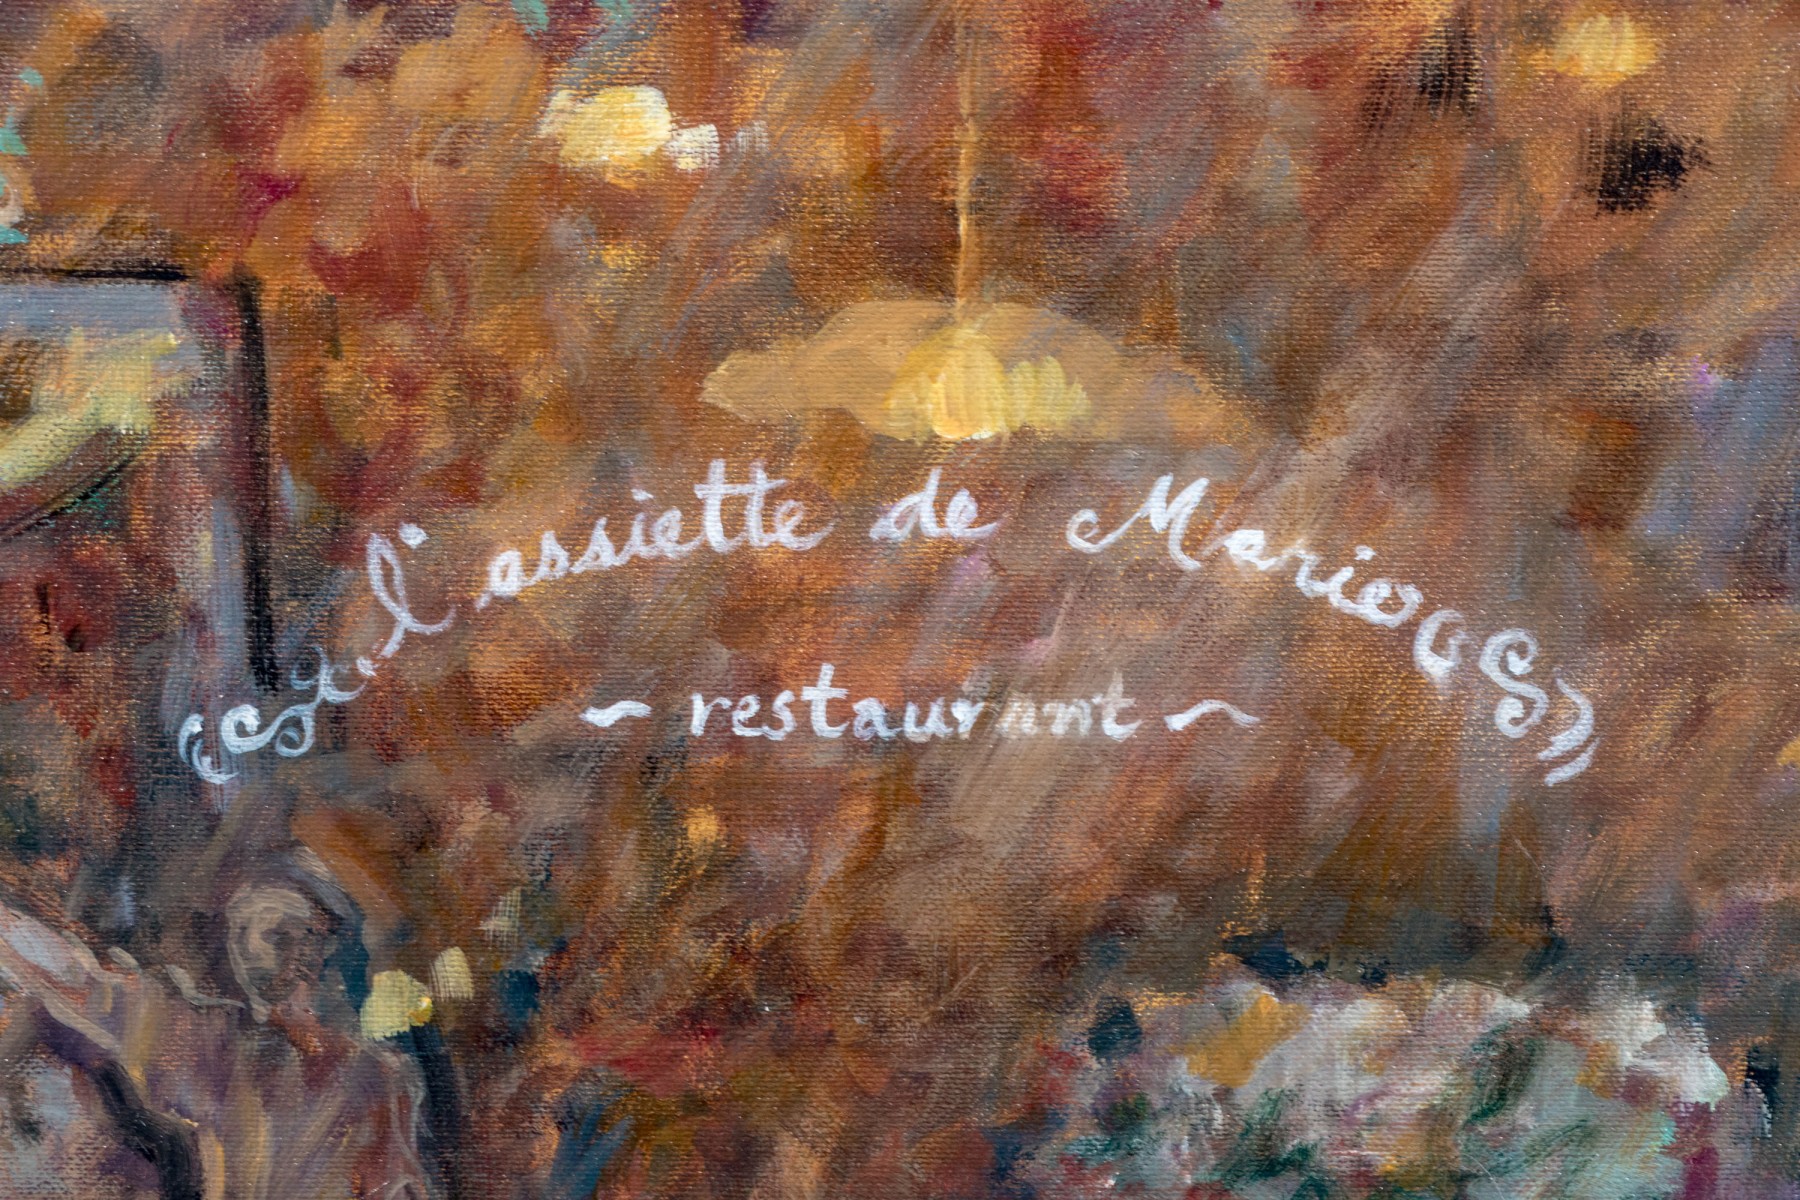 l'assiette de Mario
~ restaurant ~